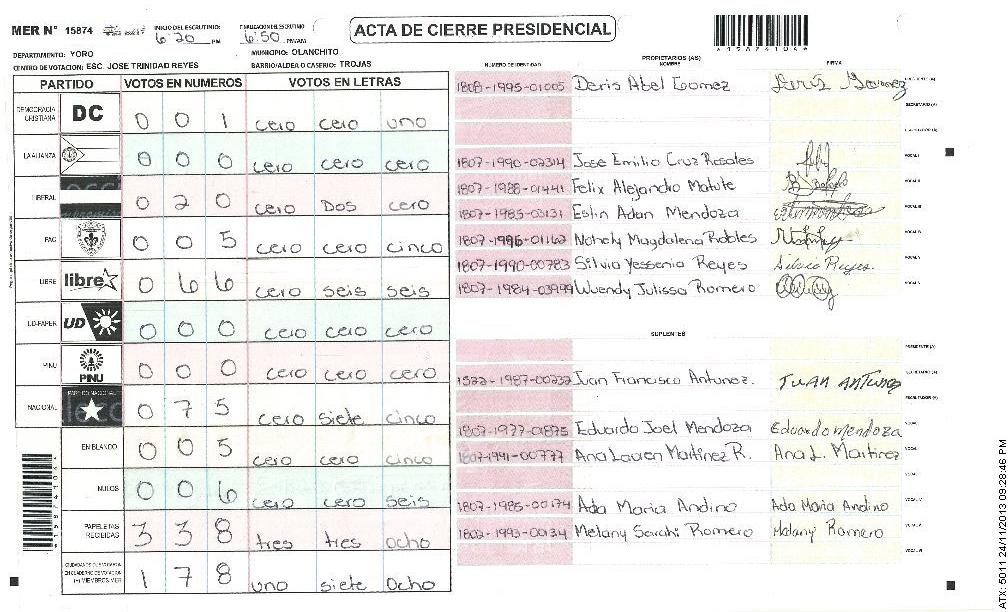 MER N° 15874
INICIO DEL ESCRUTINIO: 6:20 PM
FINALIZACION DEL ESCRUTINIO 6:50 PM/AM
ACTA DE CIERRE PRESIDENCIAL
DEPARTAMENTO: YORO
MUNICIPIO: OLANCHITO
CENTRO DE VOTACION: ESC. JOSE TRINIDAD REYES
BARRIO/ALDEA O CASERIO: TROJAS
PARTIDO VOTOS EN NUMEROS VOTOS EN LETRAS
DEMOCRACIA CRISTIANA DC 0 0 1 cero cero uno
LA ALIANZA 0 0 0 cero cero cero
LIBERAL 0 2 0 cero Dos cero
PAC 0 0 5 cero cero cinco
LIBRE libre 0 6 6 cero seis seis
UD-FAPER UD 0 0 0 cero cero cero
PINU PINU 0 0 0 cero cero cero
NACIONAL PARTIDO NACIONAL 0 7 5 cero siete cinco
EN BLANCO 0 0 5 cero cero cinco
NULOS 0 0 6 cero cero seis
PAPELETAS RECIBIDAS 3 3 8 tres tres ocho
1 7 8 uno siete ocho
PROPIETARIOS (AS)
NUMERO DE IDENTIDAD NOMBRE FIRMA
1808-1995-01005 Deris Abel Gomez
1807-1990-02314 Jose Emilio Cruz Rosales
1807-1988-01441 Felix Alejandro Matute
1807-1985-03131 Estin Adan Mendoza
1807-1996-01162 Nataly Magdalena Robles
1807-1990-00783 Silvia Yessenia Reyes Silvia Reyes.
1807-1984-03999 Wuendy Julissa Romero
SUPLENTES
1522-1987-00232 Juan Francisco Antunez. JUAN ANTUNEZ
1807-1977-01875 Eduardo Joel Mendoza Eduardo Mendoza
1807-1991-00777 Ana Lauren Martinez R. Ana L. Martinez
1807-1985-00174 Ada Maria Andino Ada Maria Andino
1802-1993-00134 Melany Sarahi Romero Melany Romero
ATX: 5011 24/11/2013 09:28:46 PM